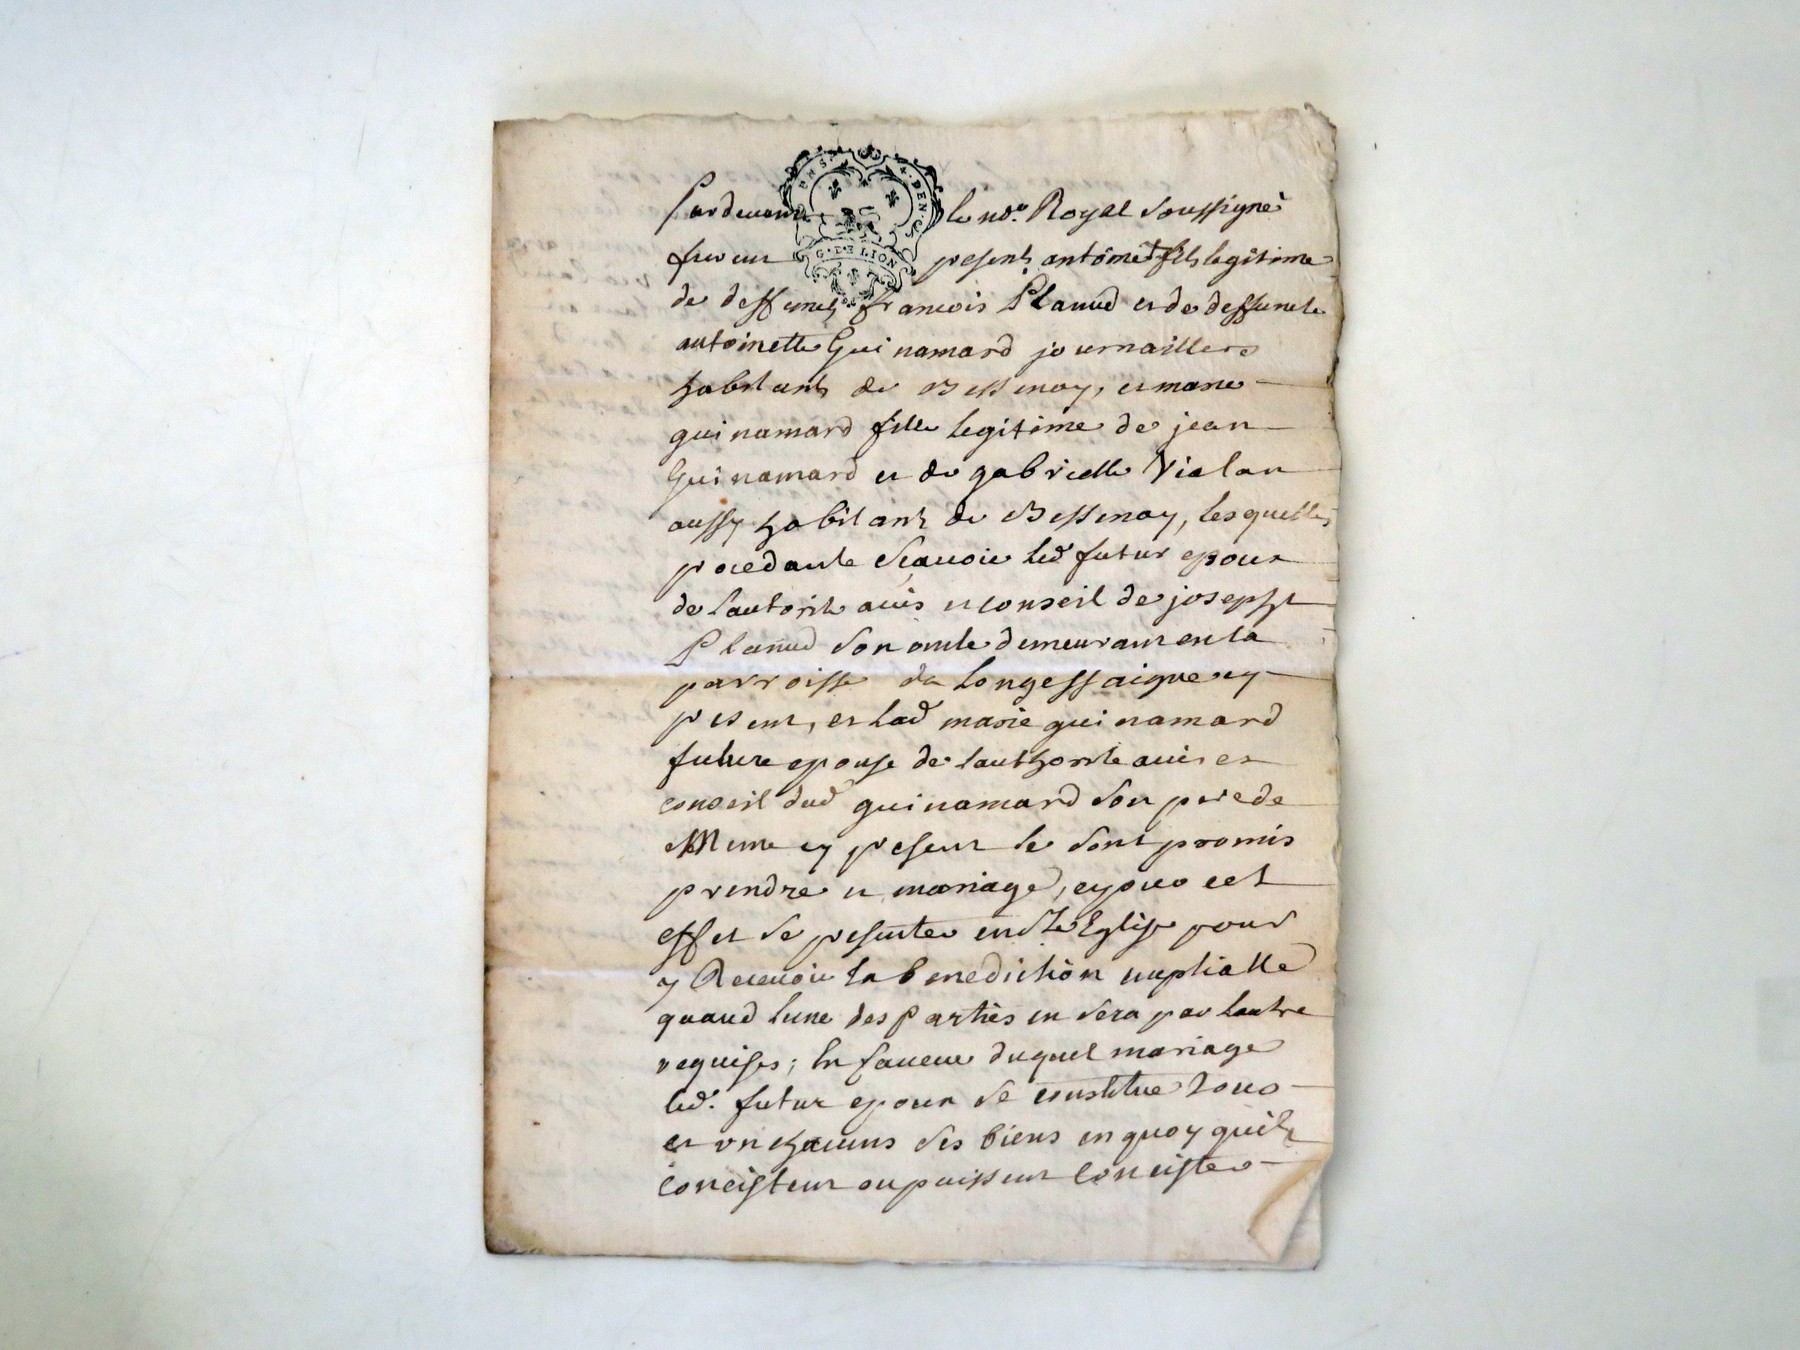 P.M.S. 4.DEN.
G.DE LION
Pardevant le no.re Royal soussigné
furent presents antoine fils legitime
de deffunct francois Planud et de deffuncte
antoinette Guinamard journaillers
habitants de Bessenay, et marie
guinamard fille legitime de jean
Guinamard et de gabrielle Vialan
aussy habitants de Bessenay, lesquelles
procedants scauoir led futur epoux
de l'autorité auis et conseil de joseph
Planud son oncle demeurant en la
parroisse de Longessaigne cy
present, et lad marie guinamard
future epouse de lauthorité auis et
conseil dud guinamard son pere de
Meme cy present se sont promis
prendre en mariage, et pour cet
effet se presenter en Ste Eglise pour
y Receuoir la benediction nuptialle
quand lune des Parties en sera par lautre
requises; En faueur duquel mariage
led. futur epoux se constitue tous
et vn chacuns ses biens en quoy quils
concistent ou puissent concister